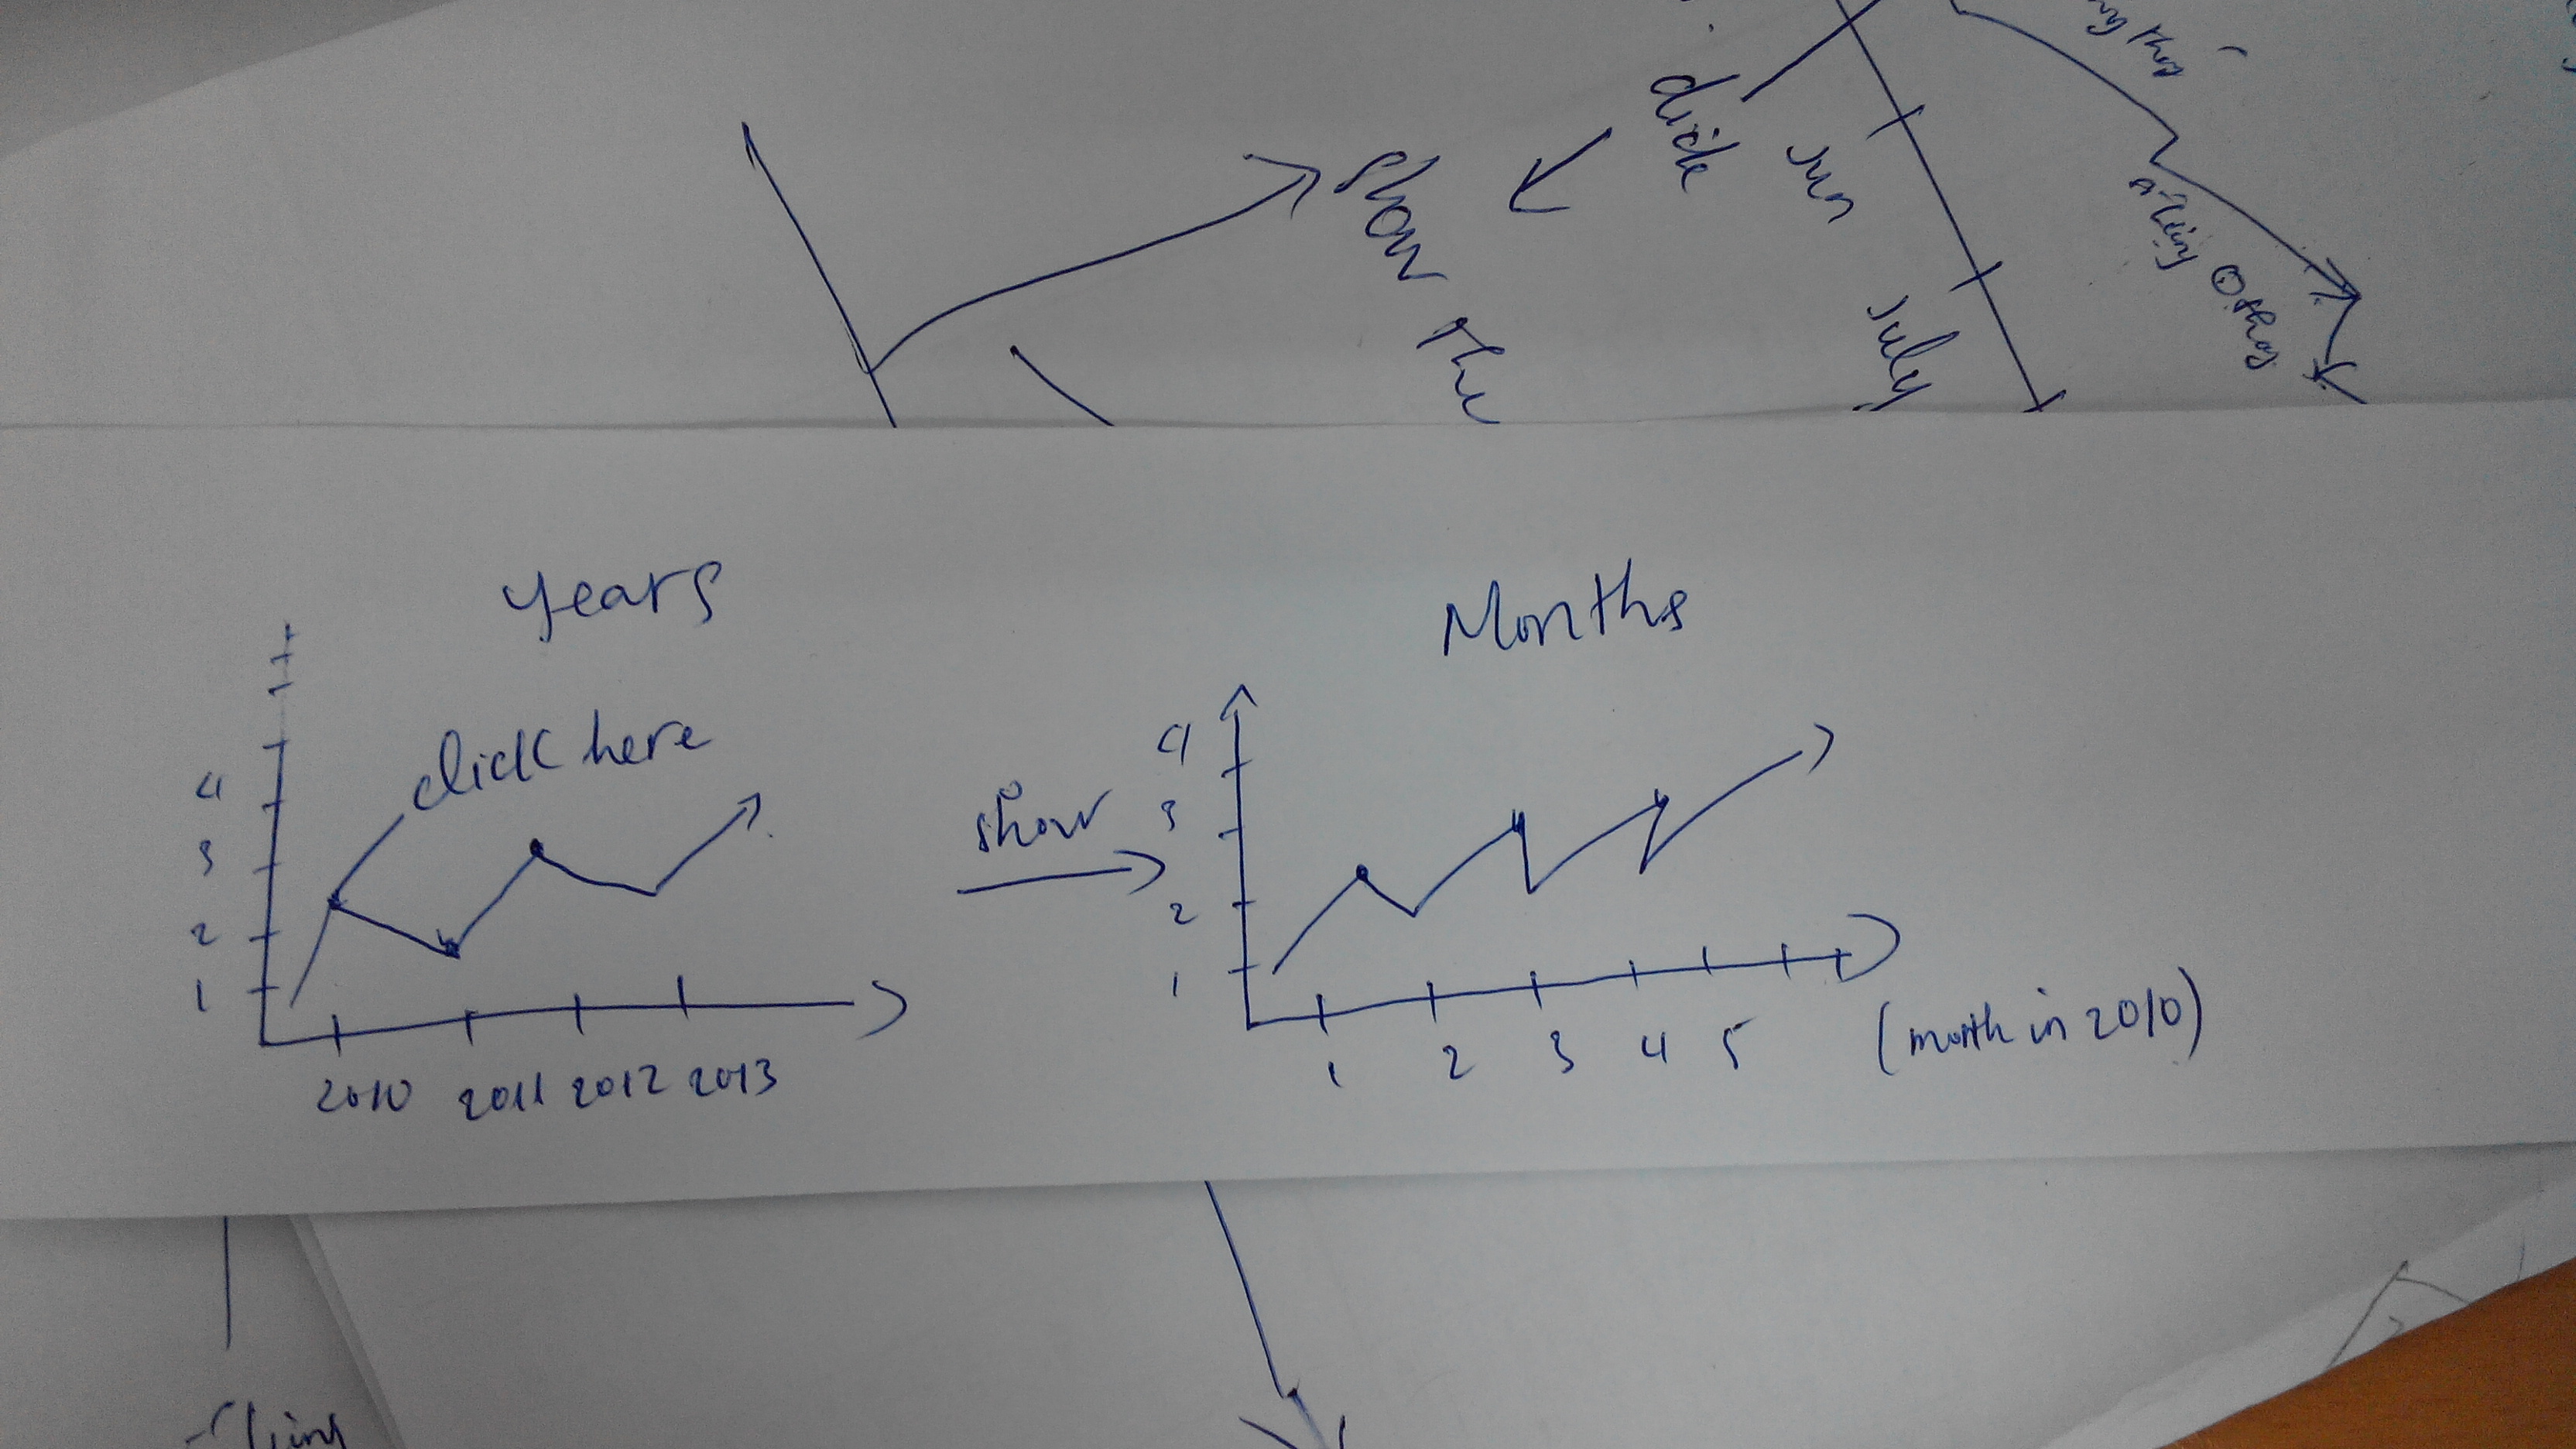 click
Jun
July
Show the
years
Months
click here
show
4
3
2
1
2010 2011 2012 2013
4
3
2
1
1 2 3 4 5 (month in 2010)